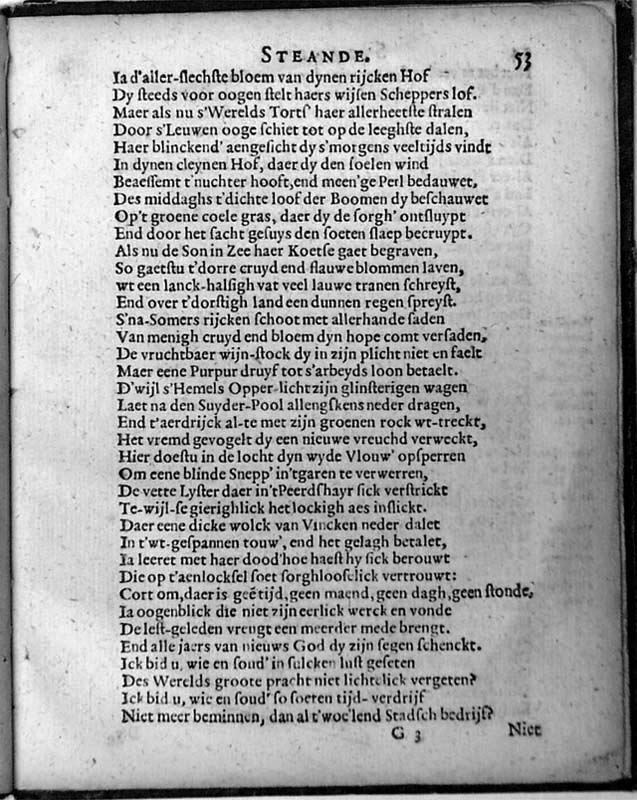 STEANDE. 53
Ia d'aller-slechste bloem van dynen rijcken Hof
Dy steeds voor oogen stelt haers wijsen Scheppers lof.
Maer als nu s'Werelds Torts' haer allerheetste stralen
Door s'Leuwen ooge schiet tot op de leeghste dalen,
Haer blinckend' aengesicht dy s'morgens veeltijds vindt
In dynen cleynen Hof, daer dy den soelen wind
Beaessemt t'nuchter hooft, end meen'ge Perl bedauwet,
Des middaghs t'dichte loof der Boomen dy beschauwet
Op't groene coele gras, daer dy de sorgh' ontsluypt
End door het sacht gesuys den soeten slaep becruypt.
Als nu de Son in Zee haer Koetse gaet begraven,
So gaetstu t'dorre cruyd end flauwe blommen laven,
wt een lanck-halsigh vat veel lauwe tranen schreyst,
End over t'dorstigh land een dunnen regen spreyst.
S'na-Somers rijcken schoot met allerhande saden
Van menigh cruyd end bloem dyn hope comt versaden,
De vruchtbaer wijn-stock dy in zijn plicht niet en faelt
Maer eene Purpur druyf tot s'arbeyds loon betaelt.
D'wijl s'Hemels Opper-licht zijn glinsterigen wagen
Laet na den Suyder-Pool allengskens neder dragen,
End t'aerdrijck al-te met zijn groenen rock wt-treckt,
Het vremd gevogelt dy een nieuwe vreuchd verweckt,
Hier doestu in de locht dyn wyde Vlouw' opsperren
Om eene blinde Snepp' in'tgaren te verwerren,
De vette Lyster daer in't Peerdshayr sick verstrickt
Te-wijl-se gierighlick het lockigh aes inslickt.
Daer eene dicke wolck van Vincken neder dalet
In t'wt-gespannen touw', end het gelagh betalet,
Ia leeret met haer dood' hoe haest hy sick berouwt
Die op t'aenlocksel soet sorghlooslick vertrouwt:
Cort om, daer is geē tijd, geen maend, geen dagh, geen stonde,
Ia oogenblick die niet zijn eerlick werck en vonde
De lest-geleden vreugt een meerder mede brengt.
End alle jaers van nieuws God dy zijn segen schenckt.
Ick bid u, wie en soud' in sulcken lust geseten
Des Werelds groote pracht niet lichtelick vergeten?
Ick bid u, wie en soud' so soeten tijd-verdrijf
Niet meer beminnen, dan al t'woe'lend Stadsch bedrijf?
G 3 Niet